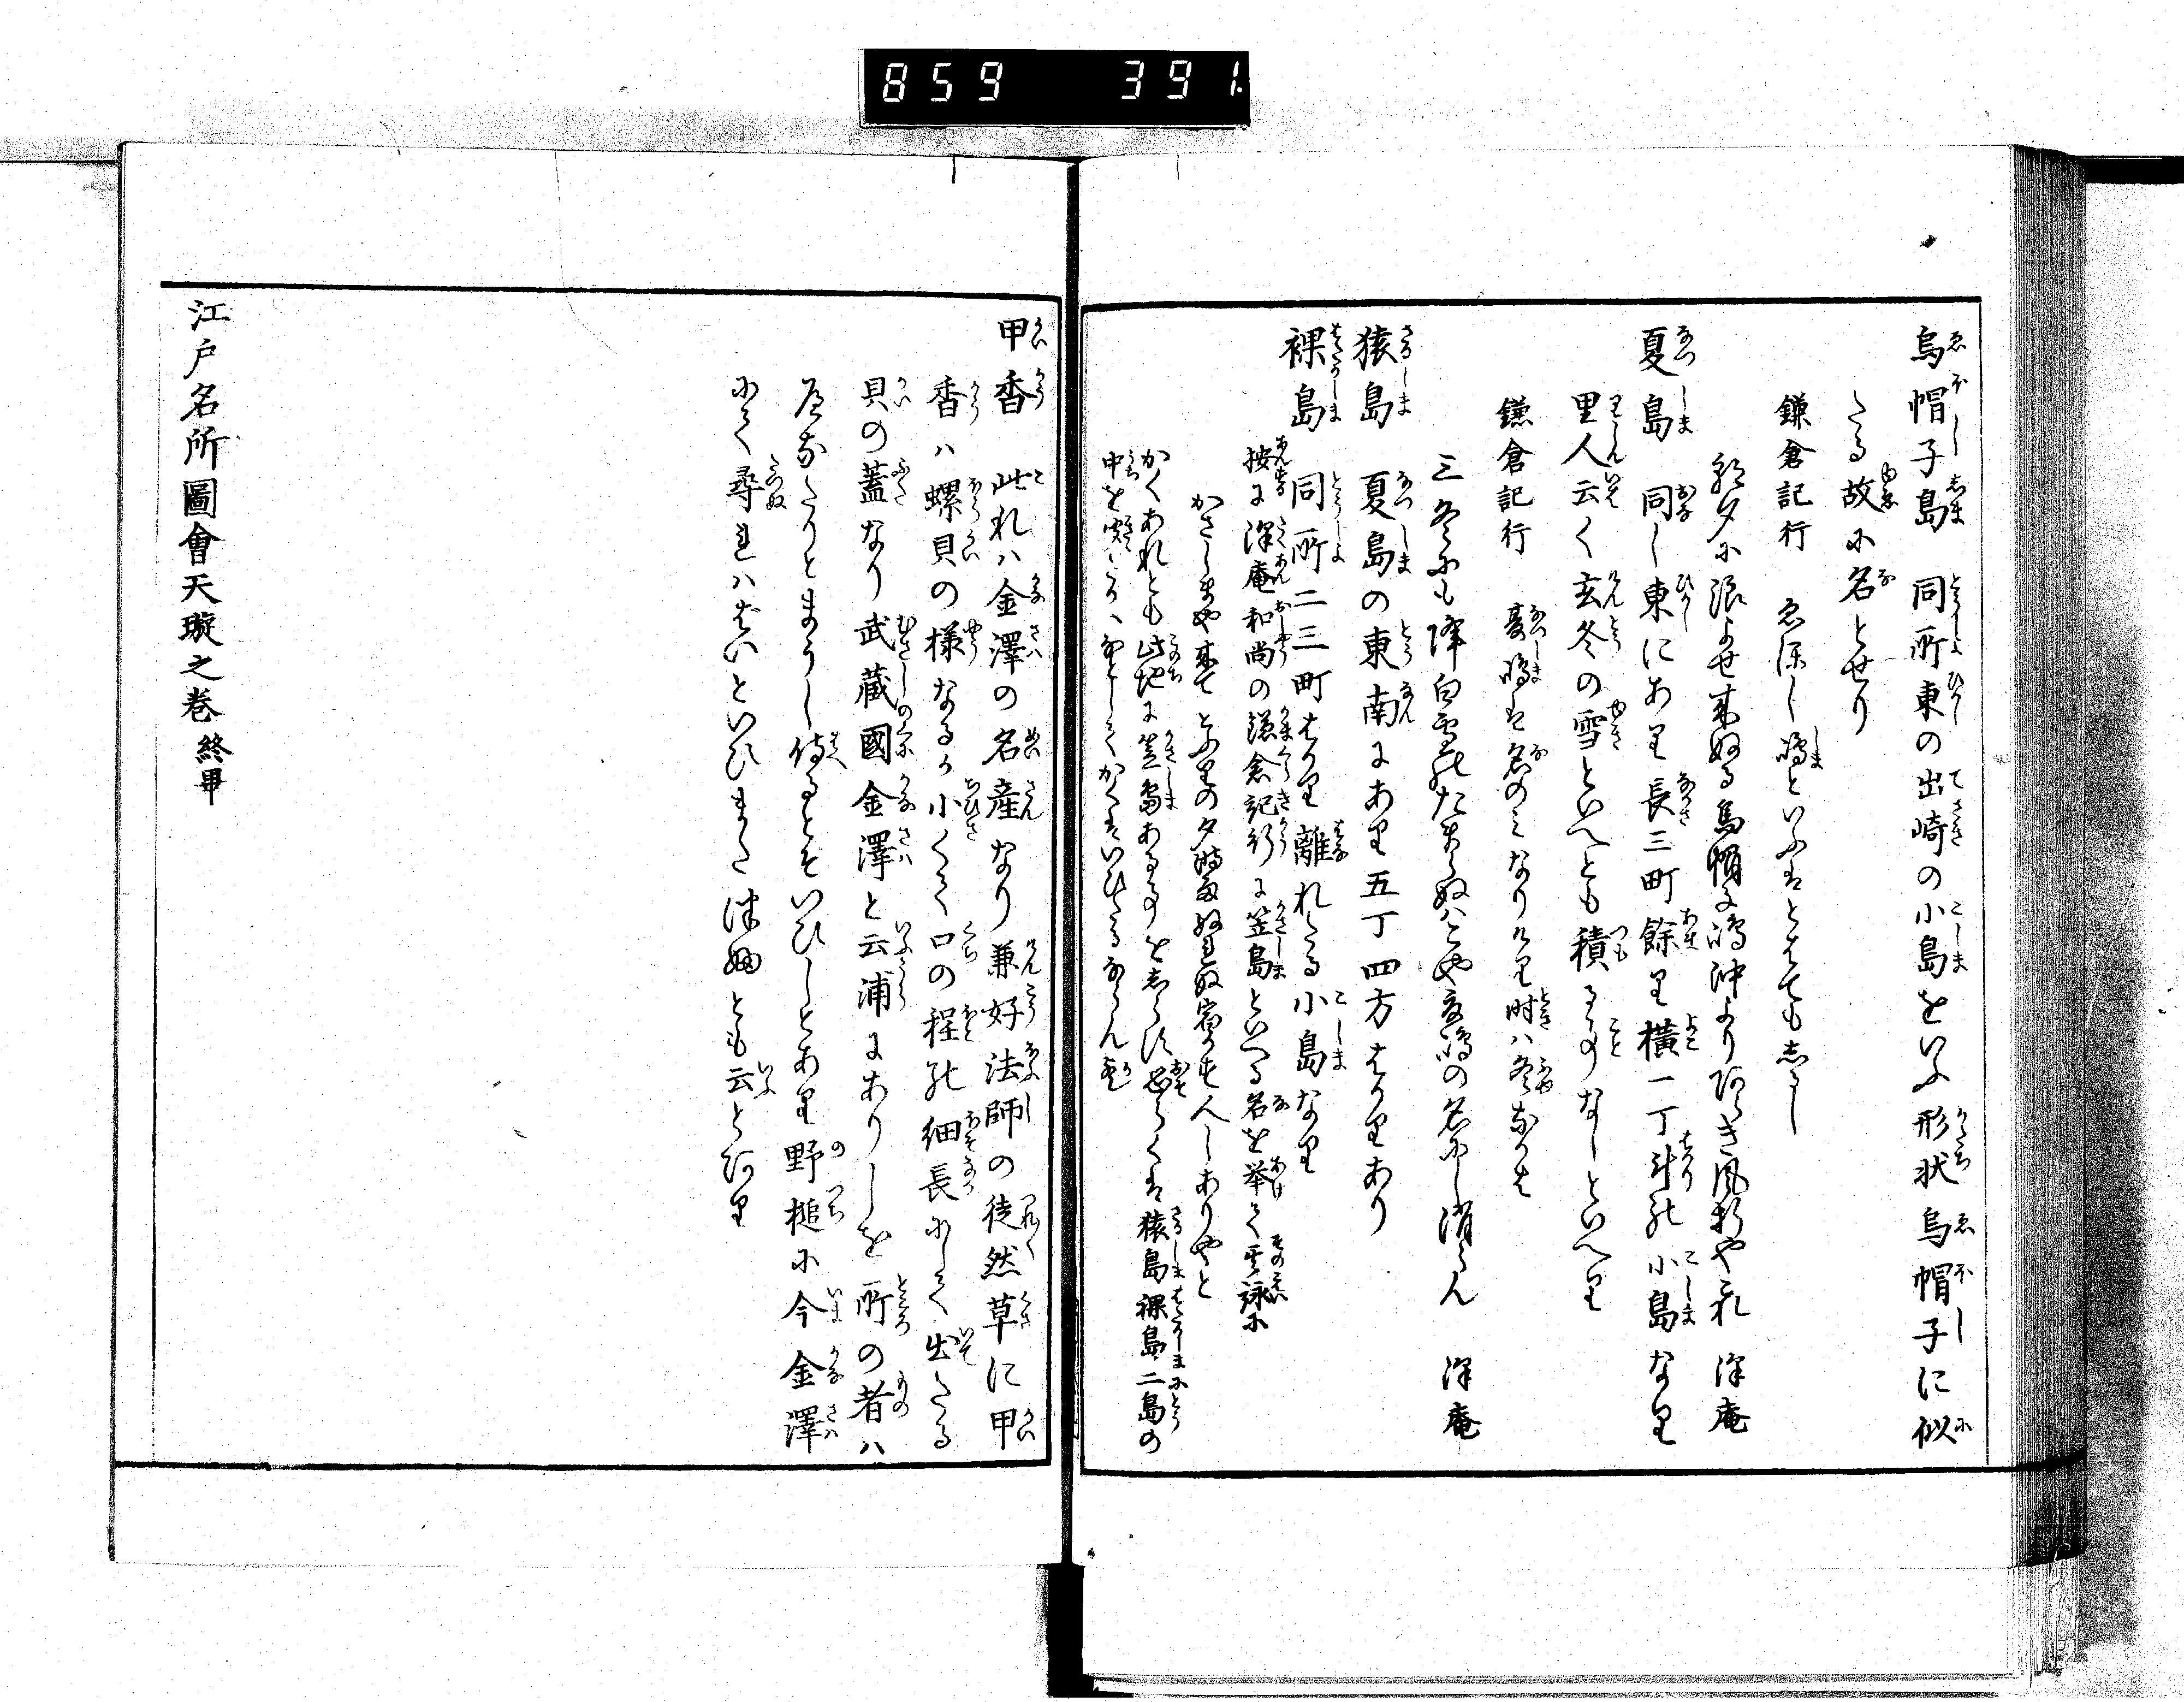 859 391
烏帽子島 同所東の出崎の小島をいふ形状烏帽子に似
たる故に名とせり
鎌倉記行 ゑほし嶋といふをとはても志るし
朝夕に浪よせ来ぬる烏帽子嶋沖よりあらき風折やこれ 澤庵
夏島 同し東にあり長三町餘り横一丁斗の小島なり
里人云く玄冬の雪といへとも積る事なしといへり
鎌倉記行 夏嶋は名のミなりけり時ハ冬なりき
三冬にも降白雪のたまらぬハこや夏嶋の名にし消らん 澤庵
猿島 夏島の東南にあり五丁四方はかりあり
裸島 同所二三町はかり離れたる小島なり
按に澤庵和尚の鎌倉記行に笠島といへる名を挙て其詠に
かさしまや来てとふ里の夕時雨ぬれぬ宿かす人しありやと
かくあれとも此地に笠島ある事をしらす恐らくは猿島裸島二島の
中を
甲香 此れハ金澤の名産なり兼好法師の徒然草に甲
香ハ螺貝の様なるか小くて口の程の細長にして出たる
貝の蓋なり武藏國金澤と云浦にありしを所の者ハ
へなたりとまうし侍るとそいひしとあり野槌に今金澤
にて尋れハばいといひまたつぶとも云とあり
江戸名所圖會天璇之巻 終畢